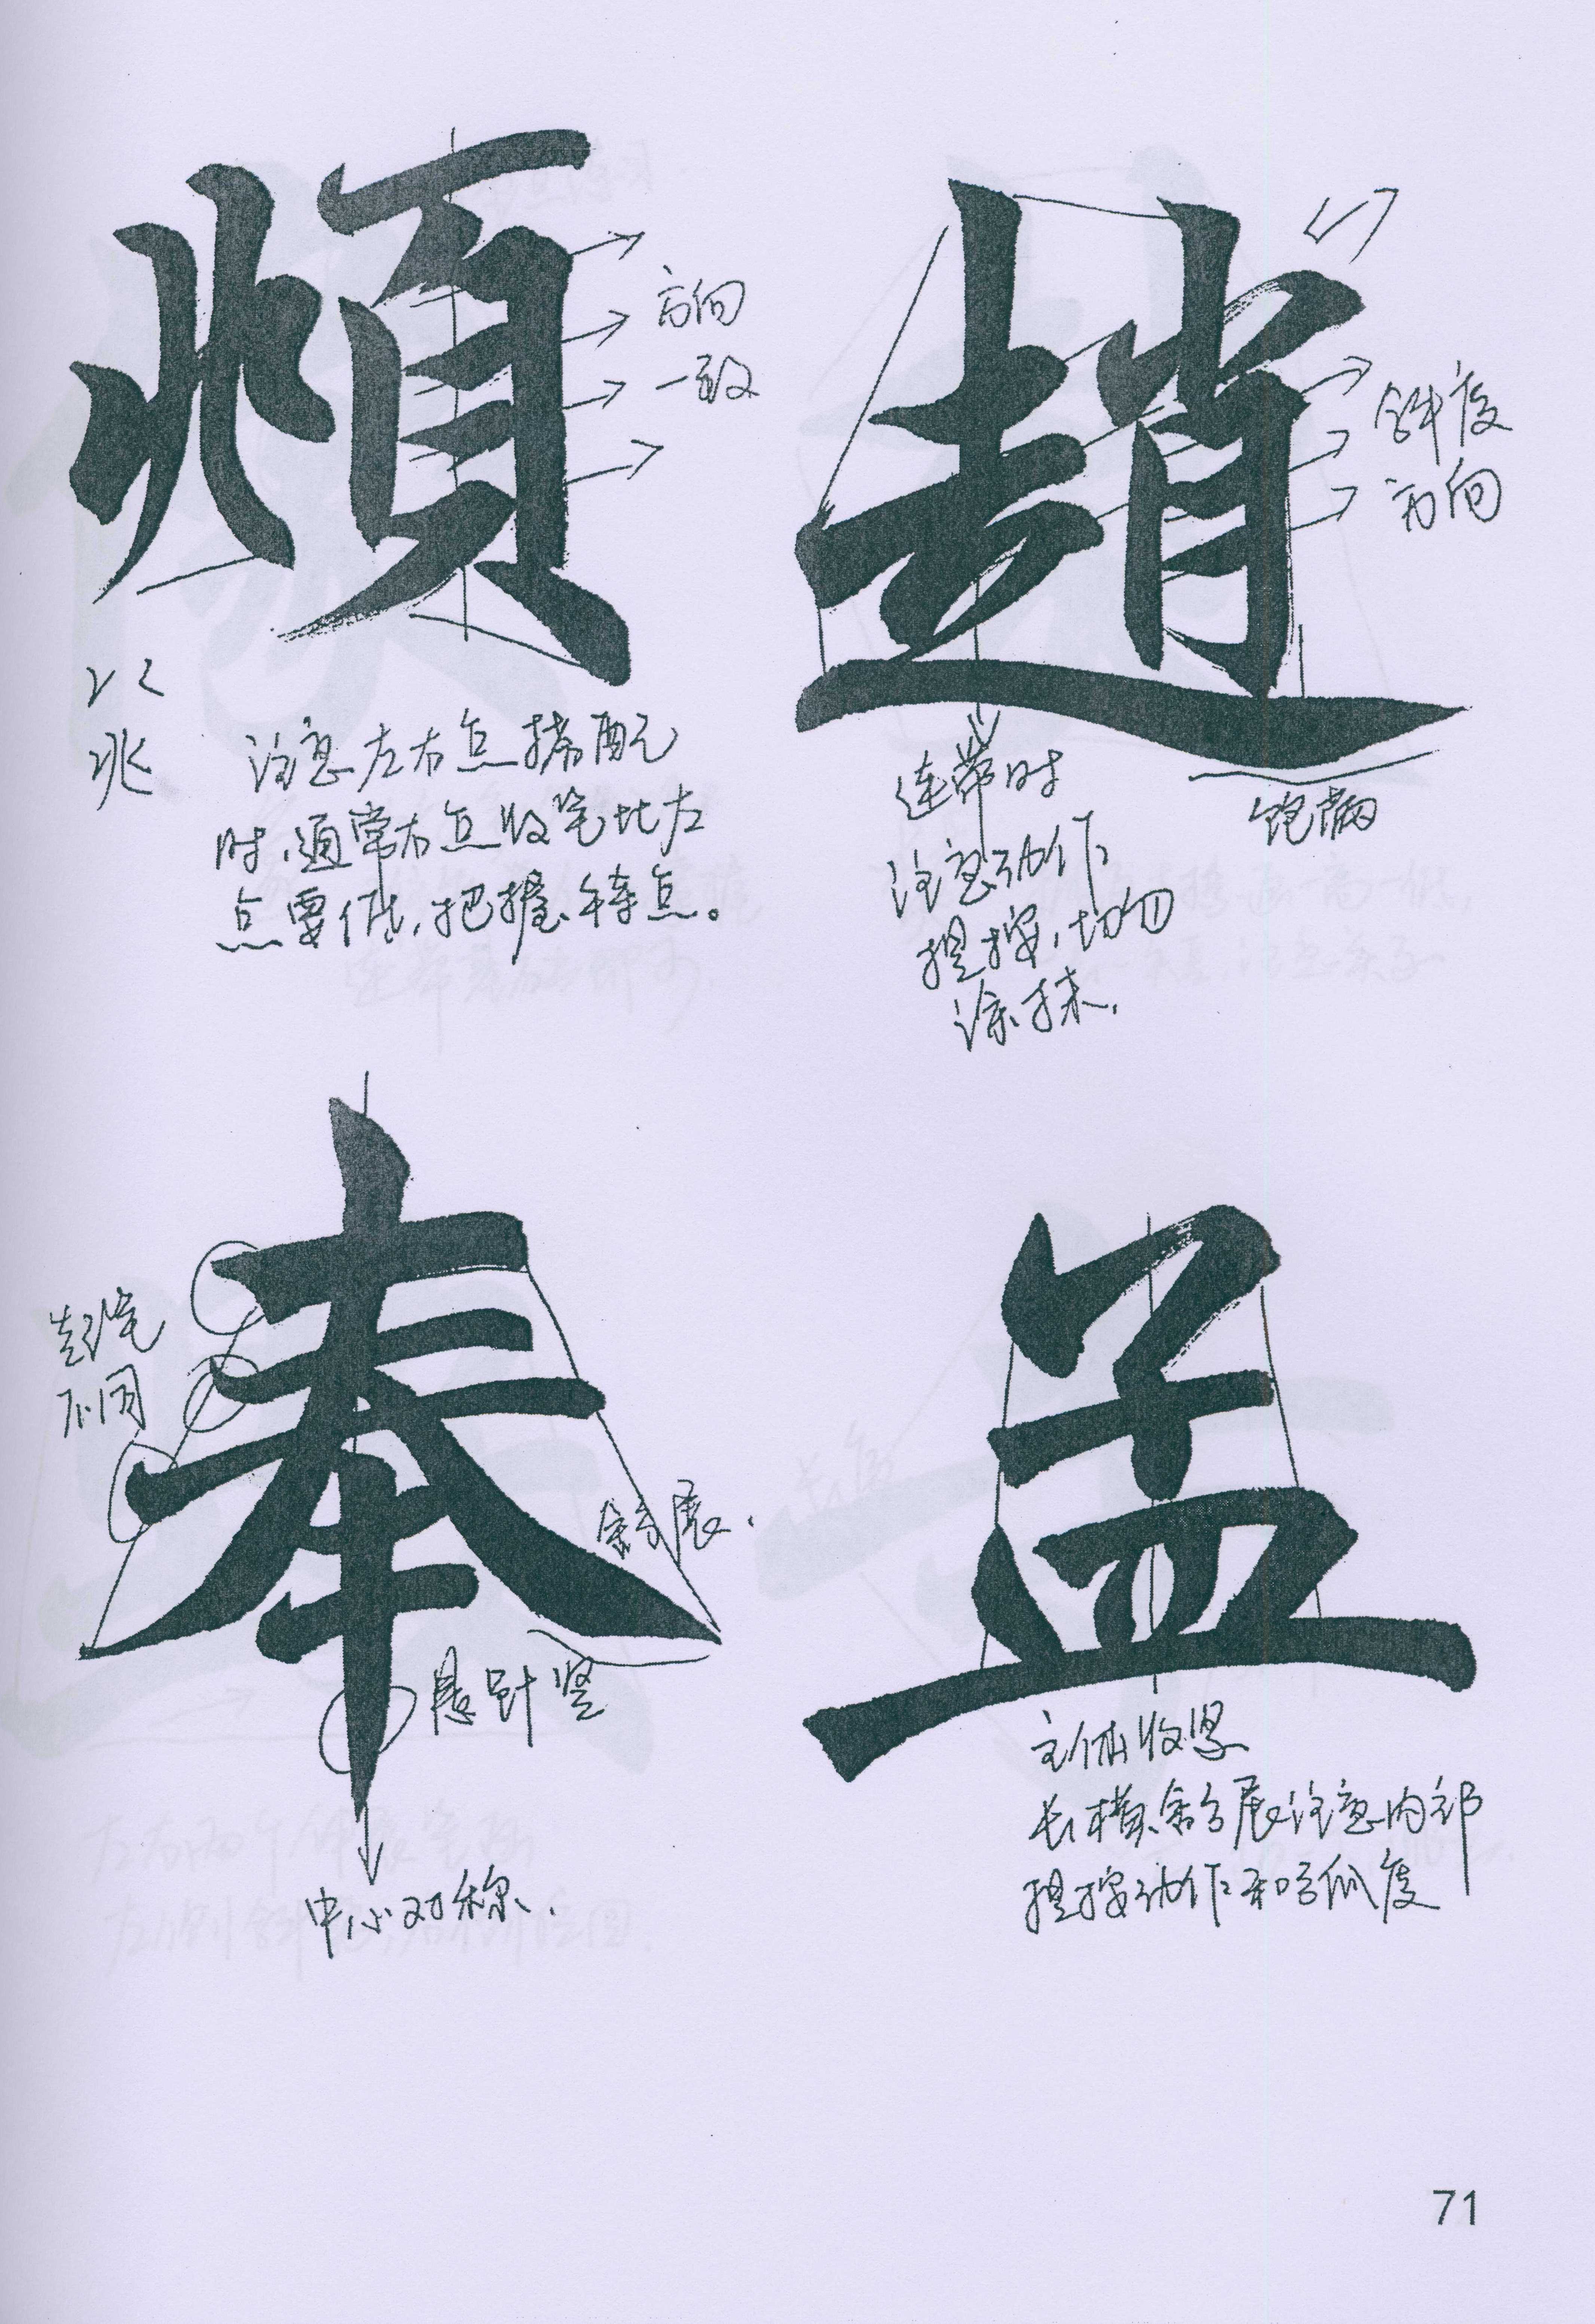 頫
方向
一致
兆
注意左右点搭配
时,通常右点收笔比左
点要低,把握特点。
趙
斜度
方向
连带时
注意动作
提按,切勿
涂抹,
饱满
奉
起笔
不同
舒展.
悬针竖
中心对称.
孟
主体收紧
长横舒展注意内部
提按动作和弧度
71